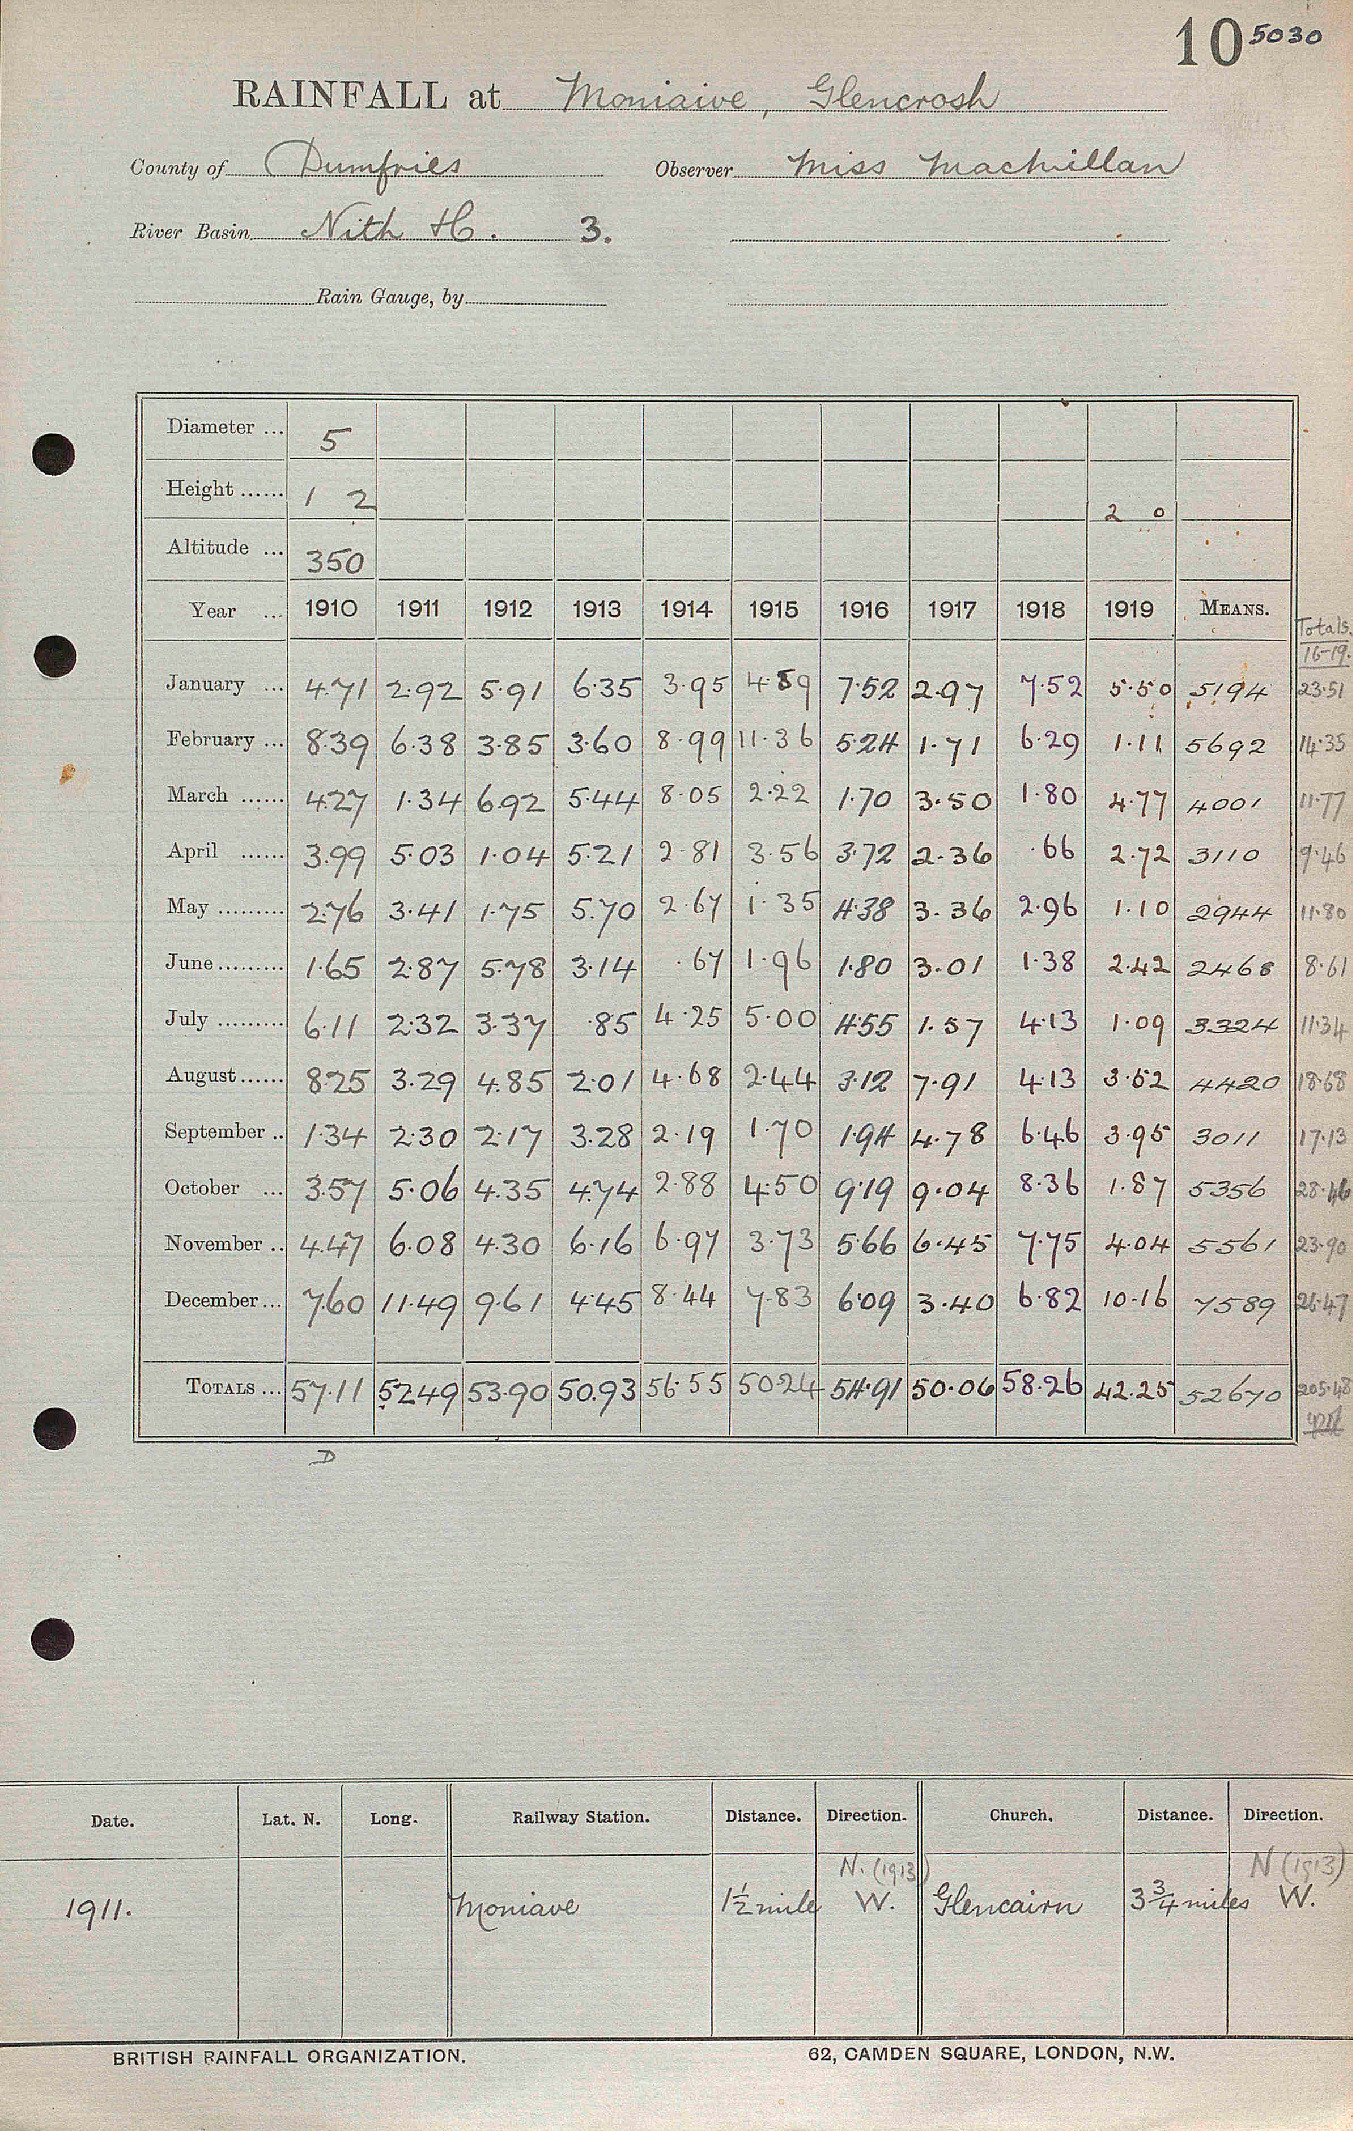 10 5030
RAINFALL at Moniaive, Glencrosh
County of Dumfries Observer Miss MacMillan
River Basin Nith H. 3.
Rain Gauge, by
Diameter ... 5
Height ...... 1 2 2 0
Altitude ... 350
Year ... 1910 1911 1912 1913 1914 1915 1916 1917 1918 1919 MEANS. Totals. 16-19.
January ... 4.71 2.92 5.91 6.35 3.95 4.59 7.52 2.97 7.52 5.50 5194 23.51
February ... 8.39 6.38 3.85 3.60 8.99 11.36 5.24 1.71 6.29 1.11 5692 14.35
March ...... 4.27 1.34 6.92 5.44 8.05 2.22 1.70 3.50 1.80 4.77 4001 11.77
April ...... 3.99 5.03 1.04 5.21 2.81 3.56 3.72 2.36 .66 2.72 3110 9.46
May ......... 2.76 3.41 1.75 5.70 2.67 1.35 4.38 3.36 2.96 1.10 2944 11.80
June ......... 1.65 2.87 5.78 3.14 .67 1.96 1.80 3.01 1.38 2.42 2468 8.61
July ......... 6.11 2.32 3.37 .85 4.25 5.00 4.55 1.57 4.13 1.09 3324 11.34
August ...... 8.25 3.29 4.85 2.01 4.68 2.44 3.12 7.91 4.13 3.52 4420 18.68
September .. 1.34 2.30 2.17 3.28 2.19 1.70 1.94 4.78 6.46 3.95 3011 17.13
October ... 3.57 5.06 4.35 4.74 2.88 4.50 9.19 9.04 8.36 1.87 5356 28.46
November .. 4.47 6.08 4.30 6.16 6.97 3.73 5.66 6.45 7.75 4.04 5561 23.90
December ... 7.60 11.49 9.61 4.45 8.44 7.83 6.09 3.40 6.82 10.16 7589 26.47
TOTALS ... 57.11 52.49 53.90 50.93 56.55 50.24 54.91 50.06 58.26 42.25 52670 205.48
D
Date. Lat. N. Long. Railway Station. Distance. Direction. Church. Distance. Direction.
N. (1913) N (1913)
1911. Moniave 1½ mile W. Glencairn 3¾ miles W.
BRITISH RAINFALL ORGANIZATION. 62, CAMDEN SQUARE, LONDON, N.W.